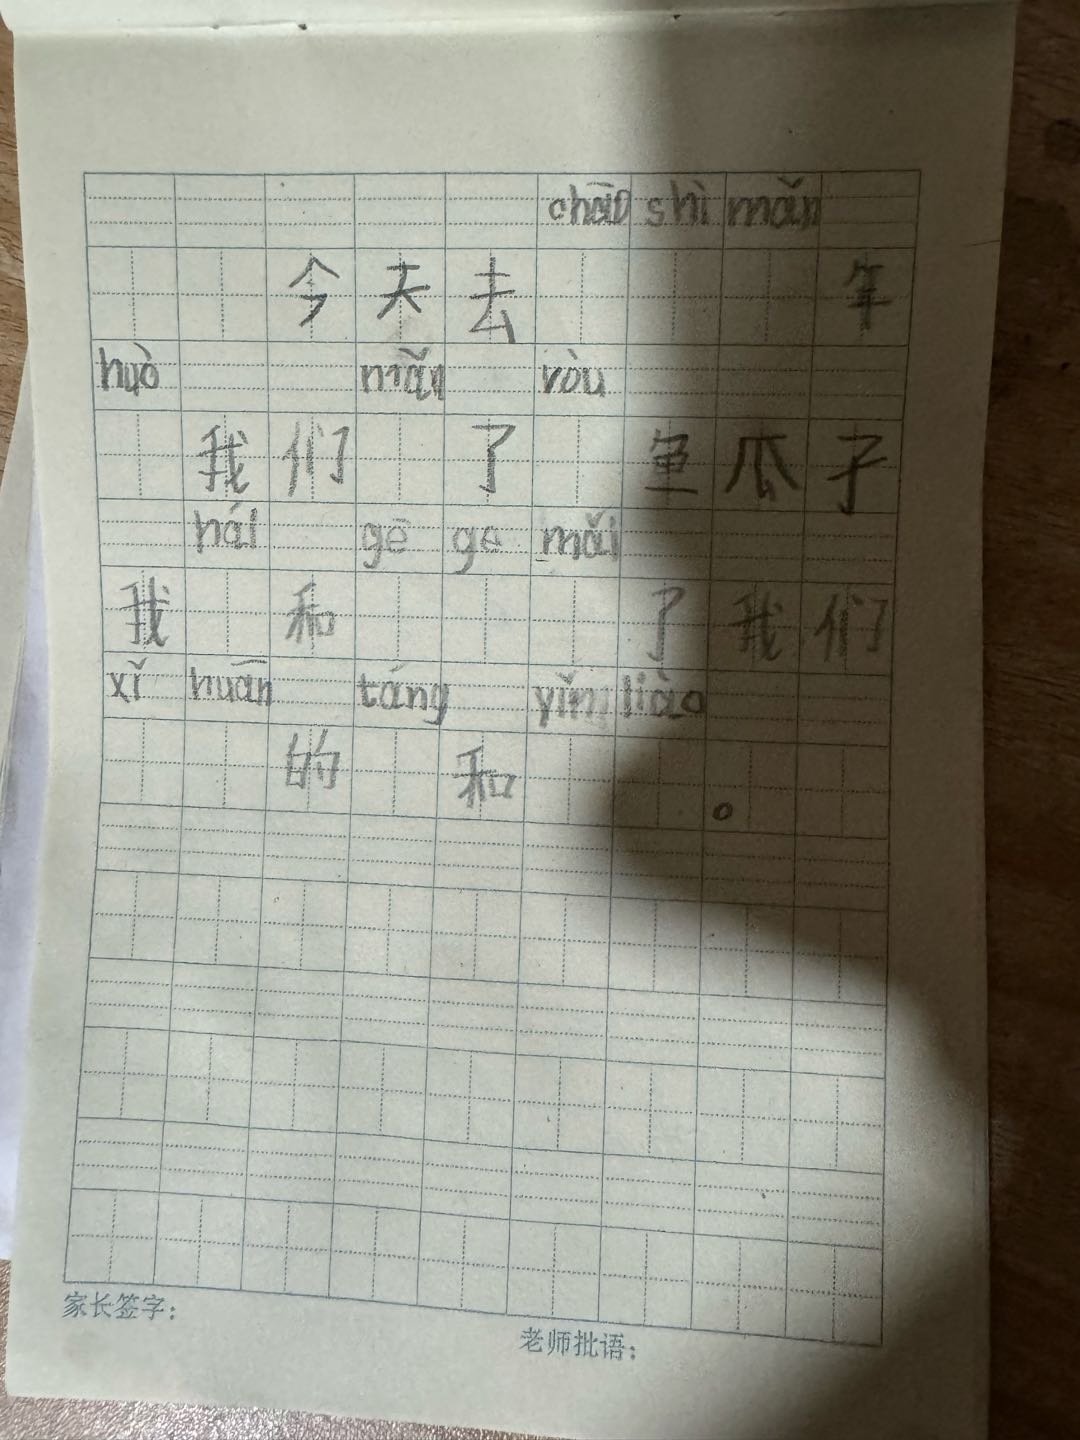 chāo shì mǎn
今天去年
huò mǎn ròu
我们了鱼瓜子
hái gē ge mǎi
我和了我们
xǐ huān táng yǐn liào
的和。
家长签字:
老师批语: